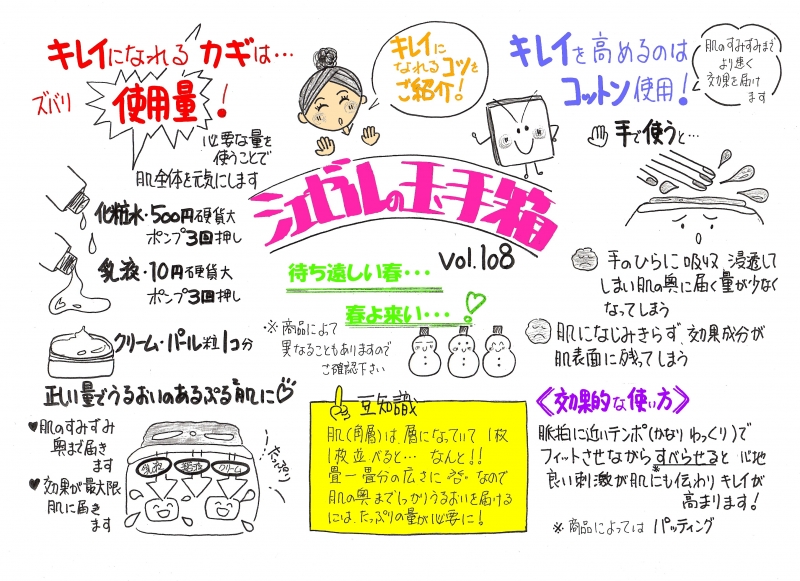 キレイになれる カギは…
ズバリ
使用量!
必要な量を
使うことで
肌全体を元気にします
化粧水・500円硬貨大
ポンプ3回押し
乳液・10円硬貨大
ポンプ3回押し
クリーム・パール粒1コ分
正しい量でうるおいのあるぷる肌に
♥肌のすみずみ
奥まで届き
ます
♥効果が最大限
肌に届き
ます
たっぷり
乳液
クリーム
キレイに
なれるコツを
ご紹介!
玉手箱
vol.108
待ち遠しい春・・・
春よ来い・・・!
※商品によって
異なることもありますので
ご確認下さい
豆知識
肌(角層)は、層になっていて1枚
1枚並べると… なんと!!
畳一畳分の広さに なので
肌の奥までしっかりうるおいを届ける
には、たっぷりの量が必要に!
キレイを高めるのは
コットン使用!
肌のすみずみまで
より速く
効果を届け
ます
手で使うと…
手のひらに吸収 浸透して
しまい肌の奥に届く量が少なく
なってしまう
肌になじみきらず、効果成分が
肌表面に残ってしまう
《効果的な使い方》
脈拍に近いテンポ(かなりゆっくり)で
フィットさせながらすべらせると 心地
良い刺激が肌にも伝わりキレイが
高まります!
※商品によっては パッティング